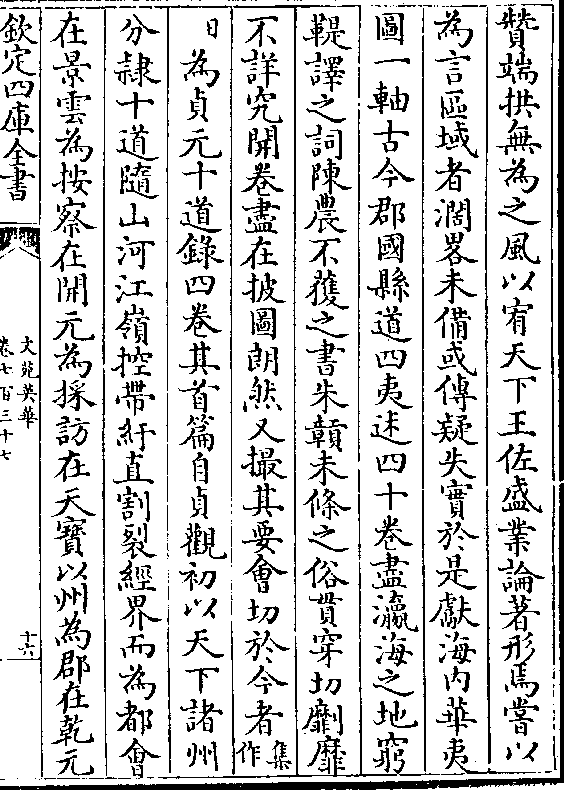 贊端拱無為之風以宥天下王佐盛業論著形焉嘗以
為言區域者濶畧未備或傳疑失實於是獻海内華夷
圖一軸古今郡國縣道四夷述四十卷盡瀛海之地窮
鞮譯之詞陳農不獲之書朱贛未條之俗貫穿切劘靡
不詳究開卷盡在披圖朗然又撮其要會切於今者集作
日為貞元十道錄四卷其首篇自貞觀初以天下諸州
分隸十道隨山河江嶺控帶紆直割裂經界而為都會
在景雲為按察在開元為採訪在天寶以州為郡在乾元
欽定四庫全書
文苑英華
卷七百三十七
十六